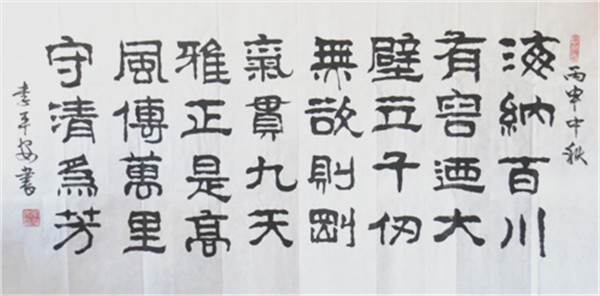 丙申中秋
海納百川
有容迺大
壁立千仞
無欲則剛
氣貫九天
雅正是高
風傳萬里
守清爲芳
李平安書